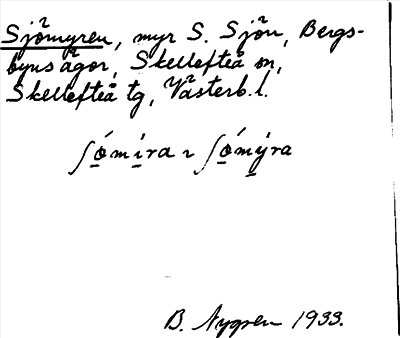 Sjömyren, myr S. Sjön, Bergs-
byns ägor, Skellefteå sn,
Skellefteå tg, Västerb. l.
ʃó̲mi̲ra ɿ ʃó̲mý̲ra
B. Nygren 1933.